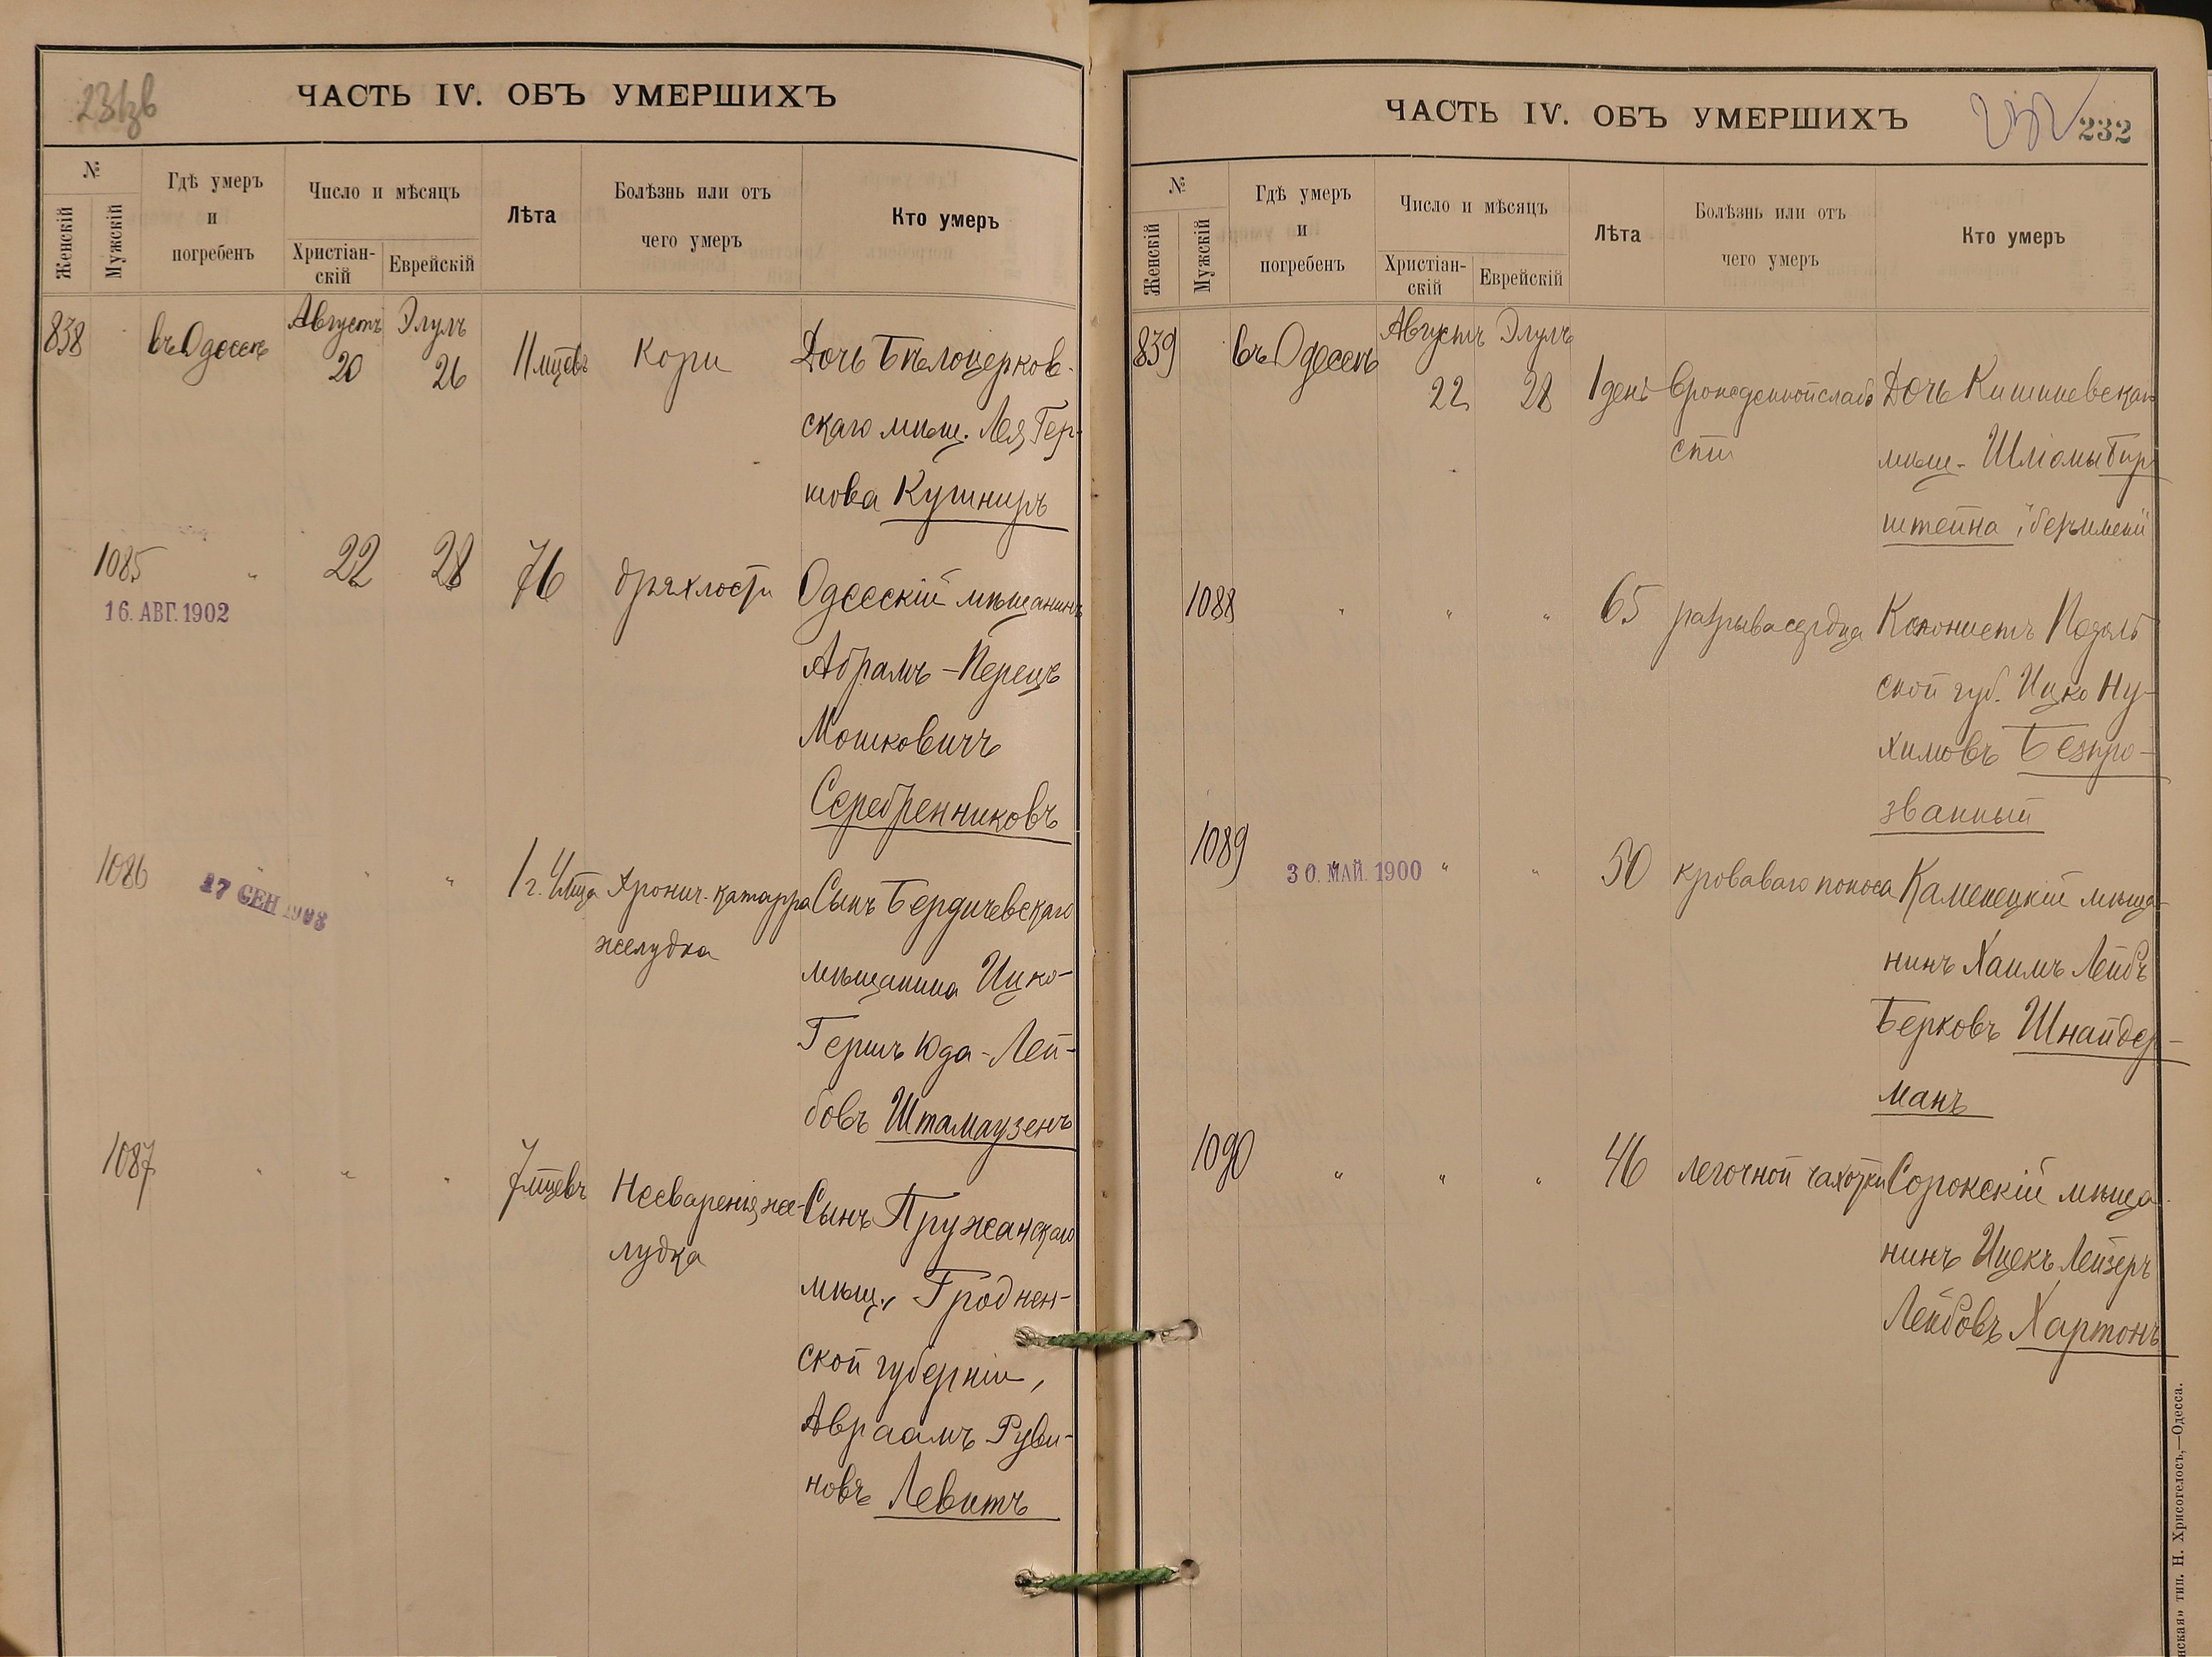 231зв
ЧАСТЬ IV. ОБЪ УМЕРШИХЪ
№
Женскій
Мужскій
Гдѣ умеръ
и
погребенъ
Число и мѣсяцъ
Христіан-
скій
Еврейскій
Лѣта
Болѣзнь или отъ
чего умеръ
Кто умеръ
838 въ Одессѣ Августъ 20 Элулъ 26 11 мцевъ Кори Дочь Бѣлоцерков-
скаго мѣщ. Лея Гер-
шова Кушниръ
1085 " 22 28 76 дряхлости Одесскій мѣщанинъ
16. АВГ. 1902
Абрамъ-Перецъ
Мошковичъ
Серебренниковъ
1086 " " " 1 г. 4 мца Хронич. катарра Сынъ Бердичевскаго
27 СЕН 1908
желудка
мѣщанина Ицко-
Гершъ Юда-Лей-
бовъ Штамаузенъ
1087 " " " 7 мцевъ Несваренія же- Сынъ Пружанскаго
лудка
мѣщ., Гроднен-
ской губерніи,
Авраамъ Руви-
новъ Левитъ
ЧАСТЬ IV. ОБЪ УМЕРШИХЪ
232
232
№
Женскій
Мужскій
Гдѣ умеръ
и
погребенъ
Число и мѣсяцъ
Христіан-
скій
Еврейскій
Лѣта
Болѣзнь или отъ
чего умеръ
Кто умеръ
839 въ Одессѣ Августъ 22 Элулъ 28 1 день Врожденной слабо Дочь Кишиневскаго
сти
мѣщ. Шліомы Бир
штейна, "безъ имени"
1088 " " " 65 разрыва сердца Колонистъ Подоль
ской губ. Ицко Ну-
химовъ Безпро-
званный
1089 " " " 50 кроваваго поноса Каменецкій мѣща-
30. МАЙ. 1900
нинъ Хаимъ Лейбъ
Берковъ Шнайдер-
манъ
1090 " " " 46 легочной чахотки Сорокскій мѣща-
нинъ Ицекъ Лейзеръ
Лейбовъ Хартонъ
нская» тип. Н. Хрисогелосъ,—Одесса.